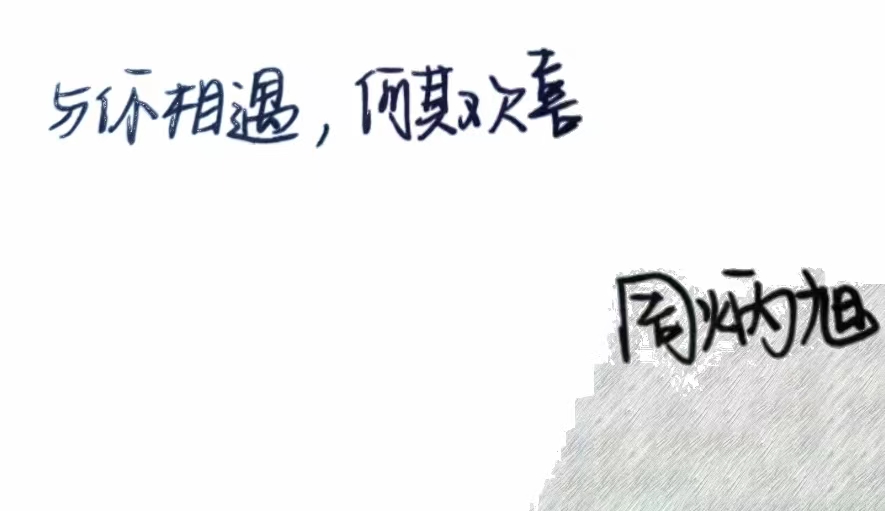 与你相遇，何其欢喜
周炳旭